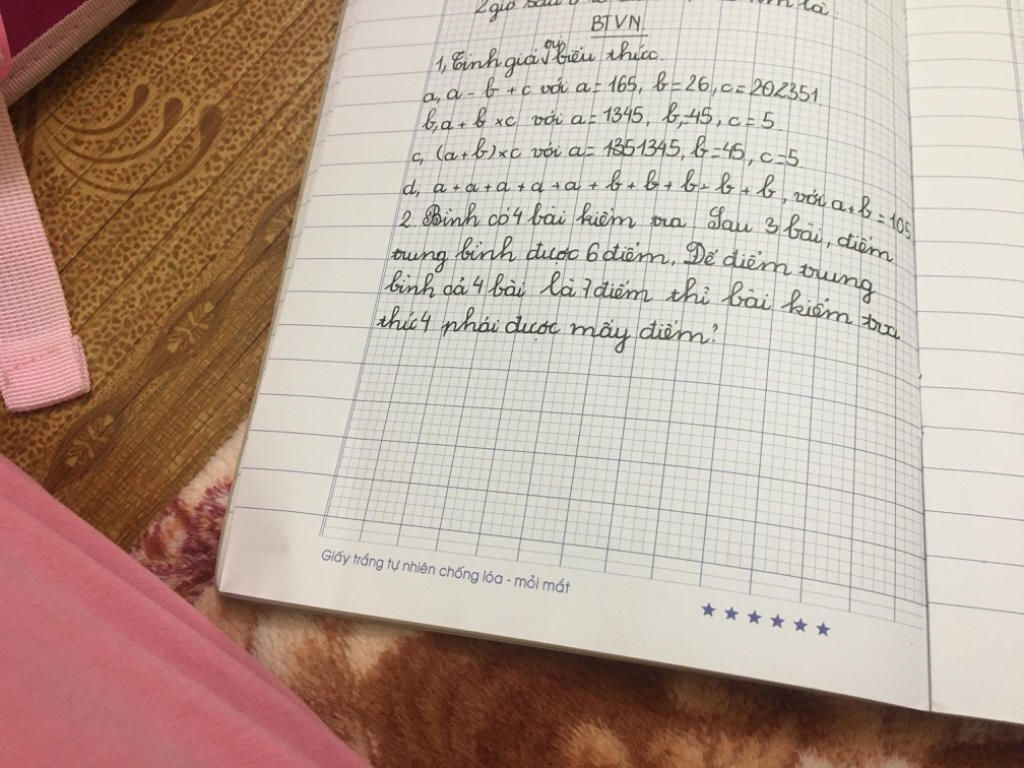 2 giờ sau
là:
BTVN
1, Tính giá trị biểu thức.
a, a - b + c với a = 165, b = 26, c = 202351
b, a + b × c với a = 1345, b = 45, c = 5.
c, (a + b) × c với a = 1351345, b = 45, c = 5.
d, a + a + a + a + a + b + b + b + b + b, với a + b = 105.
2. Bình có 4 bài kiểm tra. Sau 3 bài, điểm
trung bình được 6 điểm. Để điểm trung
bình cả 4 bài là 7 điểm thì bài kiểm tra
thứ 4 phải được mấy điểm?
Giấy trắng tự nhiên chống lóa - mỏi mắt